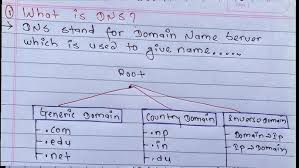 ① What is DNS?
→ DNS stand for Domain Name Server
which is used to give name.....
Root
Generic Domain
Country Domain
Inverse Domain
- .com
- .np
- Domain → IP
- .edu
- .in
- IP → Domain
- .net
- .du